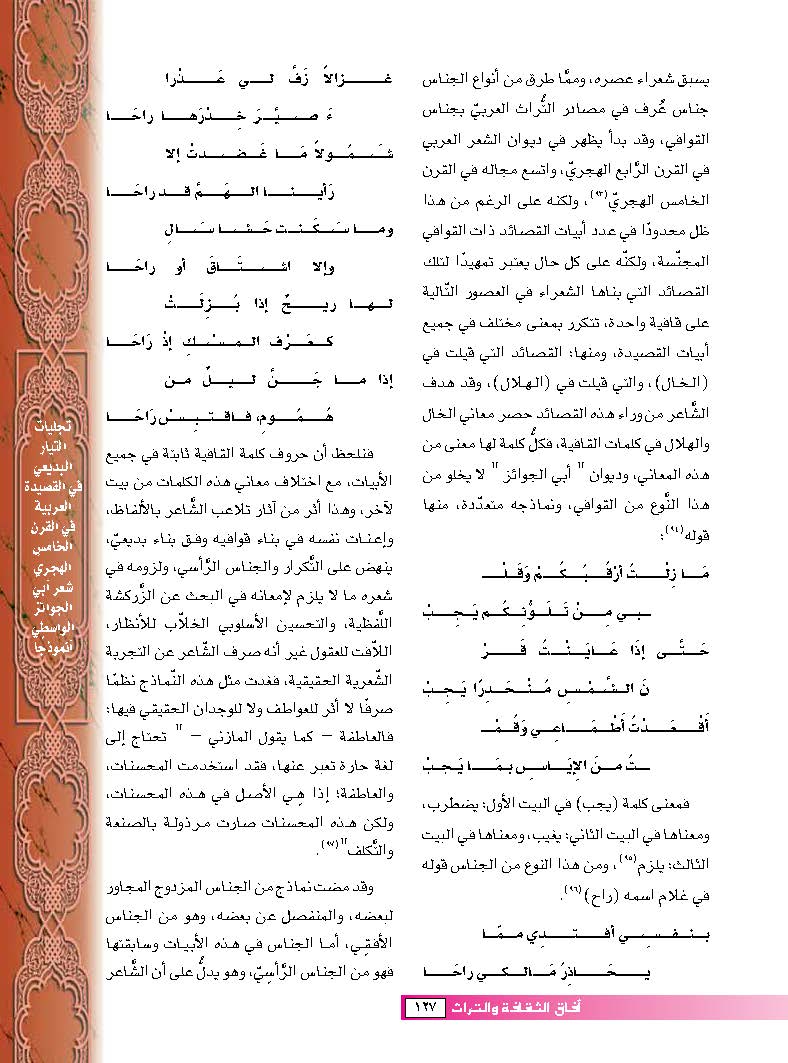 يسبق شعراء عصره، وممَّا طرق من أنواع الجناس
جناس عُرف في مصادر التُّراث العربيّ بجناس
القوافي، وقد بدأ يظهر في ديوان الشعر العربي
في القرن الرَّابع الهجريّ، واتسع مجاله في القرن
الخامس الهجريّ(٩٣)، ولكنه على الرغم من هذا
ظل محدودًا في عدد أبيات القصائد ذات القوافي
المجنّسة، ولكنّه على كل حال يعتبر تمهيدًا لتلك
القصائد التي بناها الشعراء في العصور التَّالية
على قافية واحدة، تتكرر بمعنى مختلف في جميع
أبيات القصيدة، ومنها: القصائد التي قيلت في
(الخال)، والتي قيلت في (الهلال)، وقد هدف
الشَّاعر من وراء هذه القصائد حصر معاني الخال
والهلال في كلمات القافية، فكلُّ كلمة لها معنى من
هذه المعاني، وديوان " أبي الجوائز " لا يخلو من
هذا النَّوع من القوافي، ونماذجه متعدّدة، منها
قوله(٩٤):
مَا زِلْتُ أَرْقُبُكُمْ وَقَلْـ
ـبي مِنْ تَلَوُّنِكُم يَجِبْ
حَتَّى إذَا عَايَنْتُ قَرْ
نَ الشَّمْسِ مُنْحَدِرًا يَجِبْ
أَقْعَدْتُ أَطْمَاعِي وَقُمْـ
ـتُ مِنَ الإيَاسِ بمَا يَجِبْ
فمعنى كلمة (يجب) في البيت الأول: يضطرب،
ومعناها في البيت الثاني: يغيب، ومعناها في البيت
الثالث: يلزم(٩٥)، ومن هذا النوع من الجناس قوله
في غلام اسمه (راح)(٩٦).
بنفسِي أفتدِي ممَّا
يحَاذِرُ مَالكي راحَا
غزالاً زَفَّ لي عَذْرا
ءَ صيَّرَ خِدْرَها راحَا
شَمُولاً مَا غَضدتْ إلا
رَأينا الهَمَّ قد راحَا
وما سَكَنت حَشا سَالٍ
وإلا اشتَاقَ أو راحَا
لها ريحٌ إذا بُزِلَتْ
كعَرْف المسْكِ إذْ رَاحَا
إذا ما جَنَّ ليلٌ من
هُمُومٍ، فاقتبِسْ رَاحَا
فنلحظ أن حروف كلمة القافية ثابتة في جميع
الأبيات، مع اختلاف معاني هذه الكلمات من بيت
لآخر، وهذا أثر من آثار تلاعب الشَّاعر بالألفاظ،
وإعنات نفسه في بناء قوافيه وفق بناء بديعيّ،
ينهض على التَّكرار والجناس الرَّأسي، ولزومه في
شعره ما لا يلزم لإمعانه في البحث عن الزَّركشة
اللَّفظية، والتحسين الأسلوبي الخلَّاب للأنظار،
اللَّافت للعقول غير أنه صرف الشَّاعر عن التجربة
الشّعرية الحقيقية، فغدت مثل هذه النَّماذج نظمًا
صرفًا لا أثر للعواطف ولا للوجدان الحقيقي فيها؛
فالعاطفة – كما يقول المازني – " تحتاج إلى
لغة حارة تعبر عنها، فقد استخدمت المحسنات،
والعاطفة؛ إذا هِي الأصل في هذه المحسنات،
ولكن هذه المحسنات صارت مرذولة بالصنعة
والتَّكلف"(٩٧).
وقد مضت نماذج من الجناس المزدوج المجاور
لبعضه، والمنفصل عن بعضه، وهو من الجناس
الأفقِي، أما الجناس في هذه الأبيات وسابقتها
فهو من الجناس الرَّأسِيّ، وهو يدلُّ على أن الشَّاعر
تجليات
التيار
البديعي
في القصيدة
العربية
في القرن
الخامس
الهجري
شعر أبي
الجوائز
الواسطي
أنموذجا
آفاق الثقافة والتراث ١٢٧